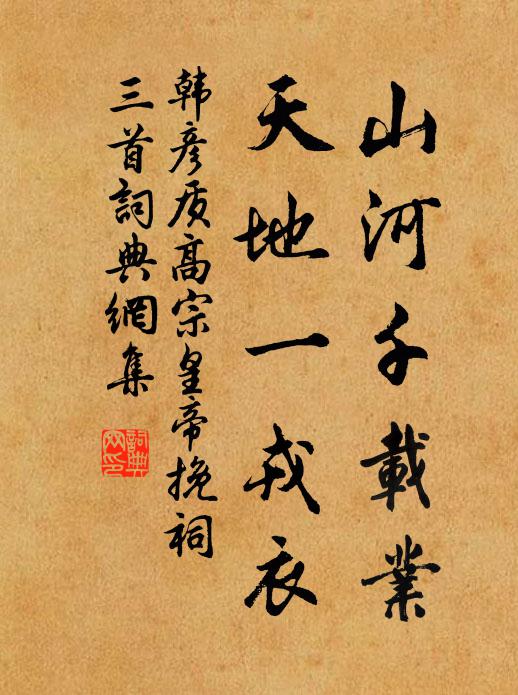 山河千載業
天地一戎衣
韩彦质高宗皇帝挽祠
三首詞典網集
詞典
网印